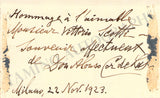 Hommage à l'aimable
Monsieur Vittorio Scotti
Souvenir affectueux
de
Milano, 22 Nov. 1923.